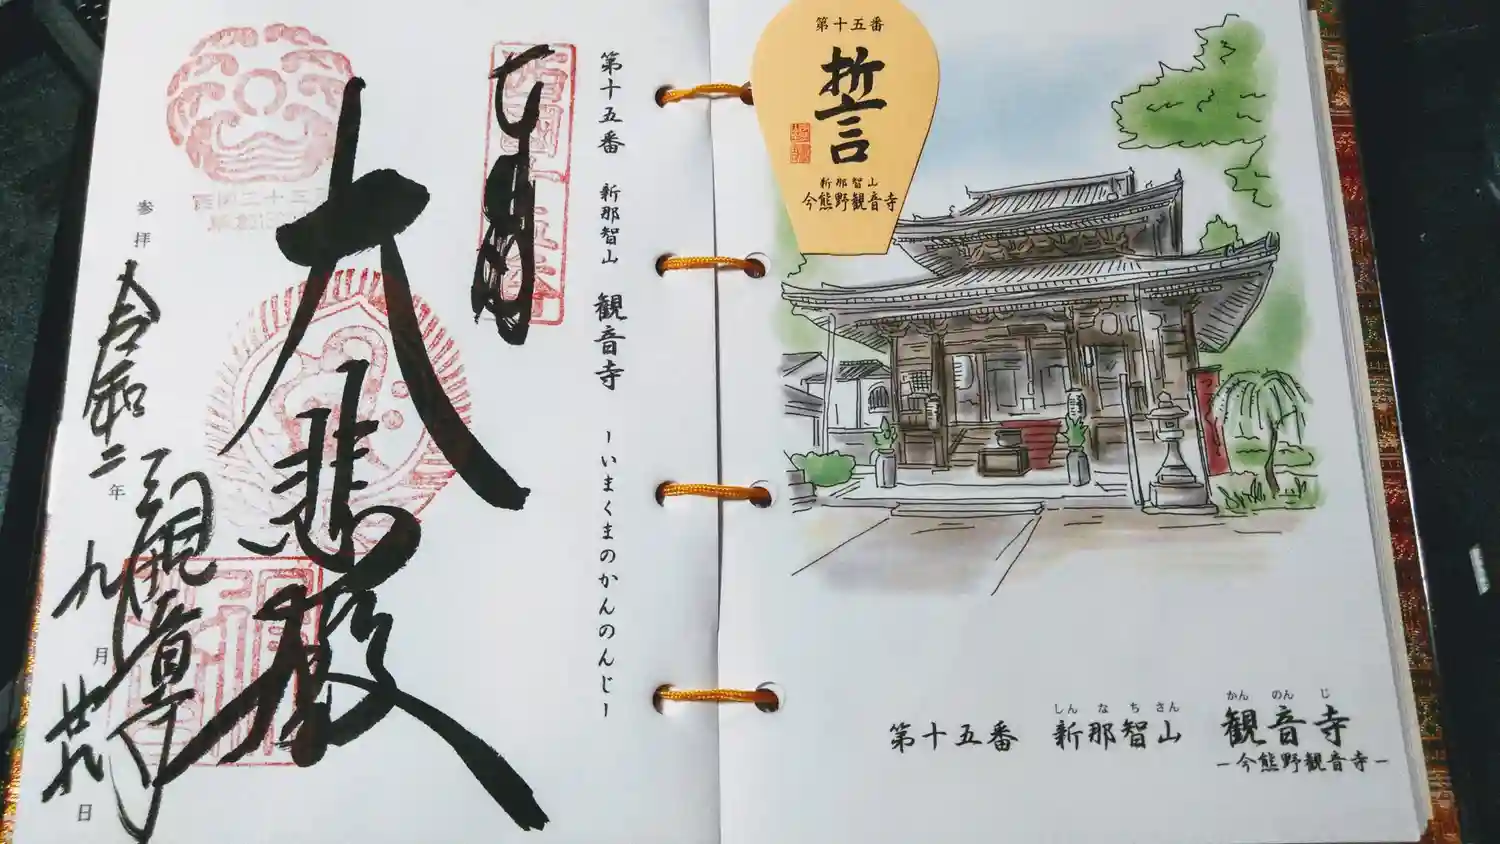 第十五番 新那智山 観音寺 ーいまくまのかんのんじー
西国十五番
大悲殿
観音寺
参拝 令和二年 九月 廿九日
第十五番
誓
新那智山
今熊野観音寺
しんなちさん かんのんじ
第十五番 新那智山 観音寺
ー今熊野観音寺ー